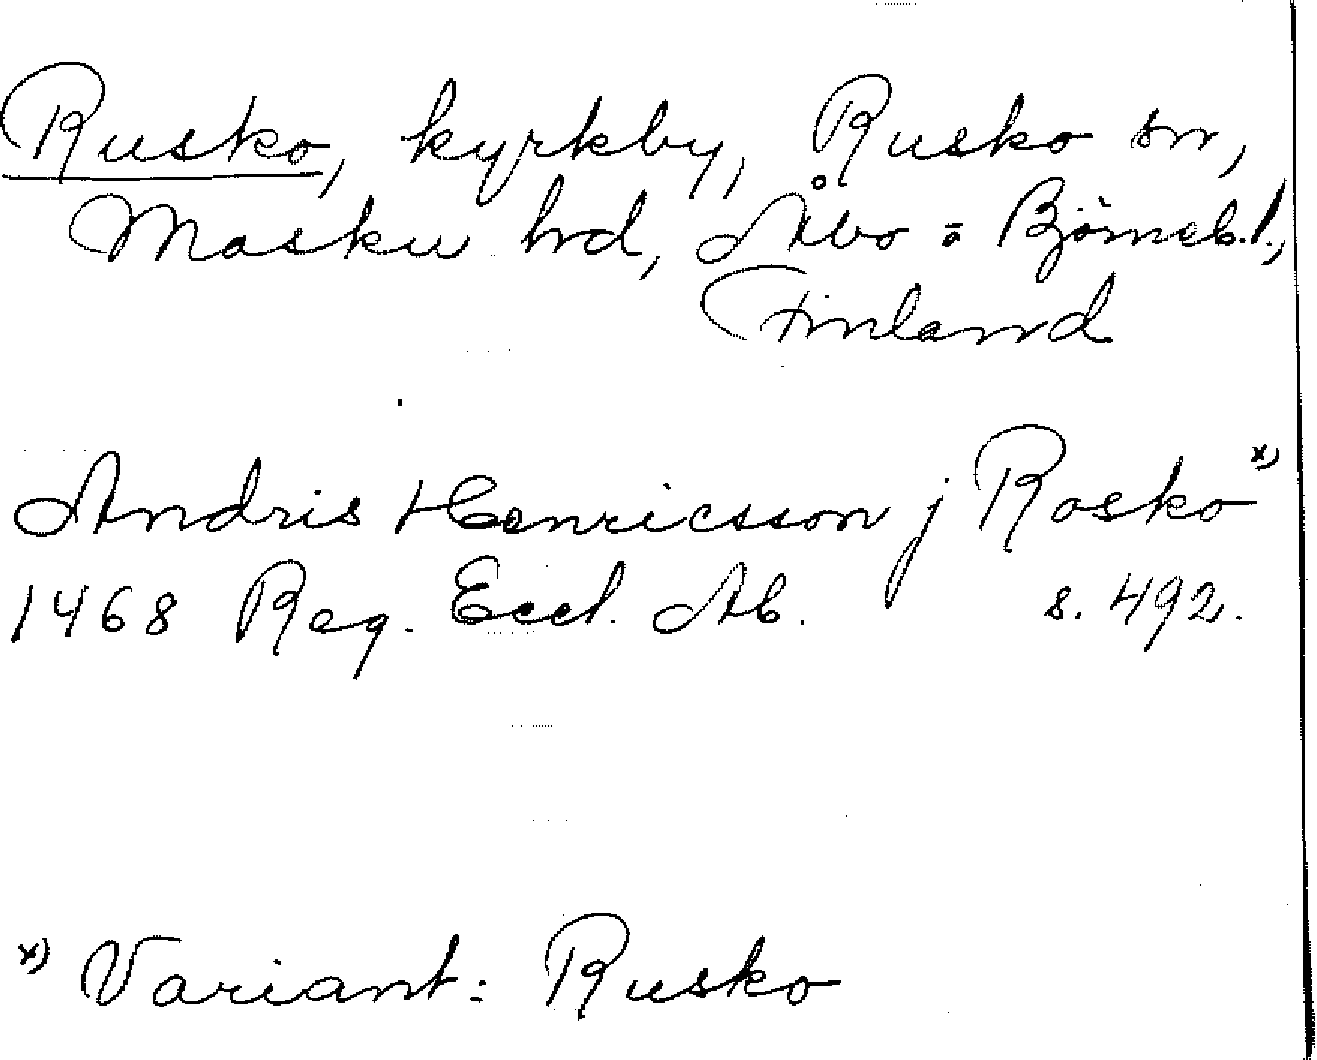 Rusko, kyrkby, Rusko sn,
Masku hd, Åbo o Björneb.l.,
Finland
Andris Henricsson j Rosko x)
1468 Reg. Eccl. Ab. s. 492.
x) Variant: Rusko